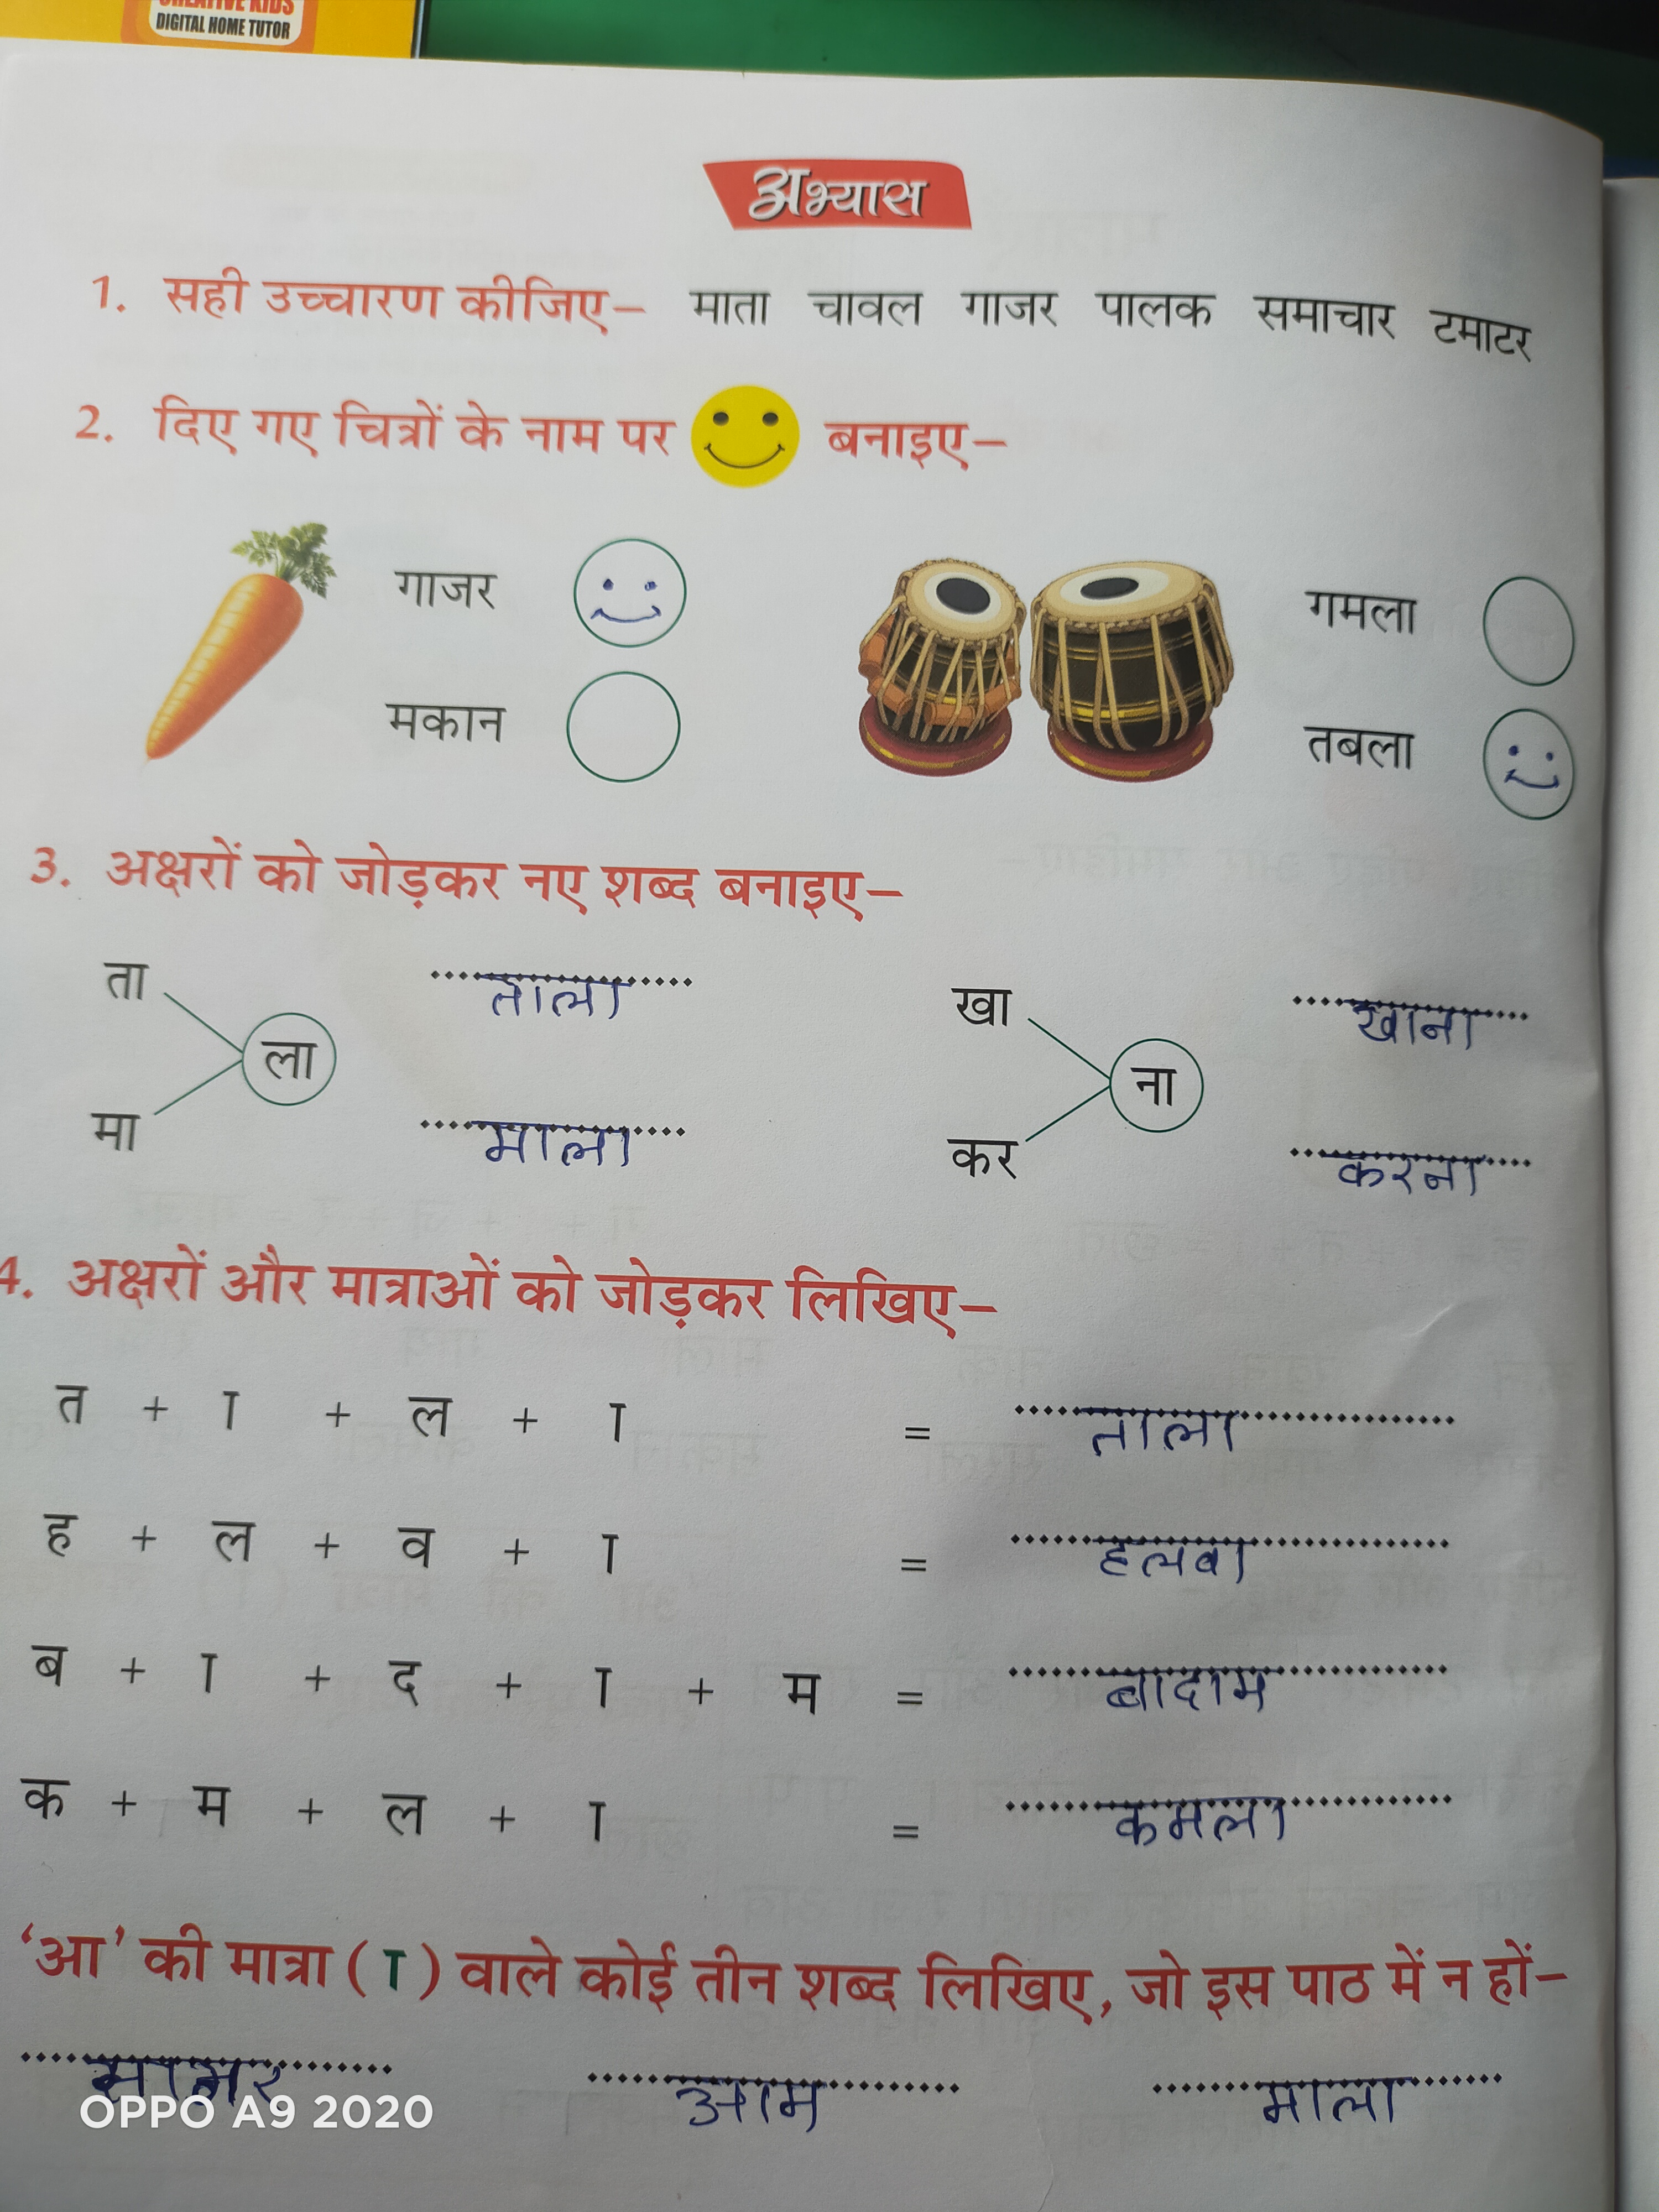 CREATIVE KIDS
DIGITAL HOME TUTOR
अभ्यास
1. सही उच्चारण कीजिए– माता चावल गाजर पालक समाचार टमाटर
2. दिए गए चित्रों के नाम पर बनाइए–
गाजर
मकान
गमला
तबला
3. अक्षरों को जोड़कर नए शब्द बनाइए–
ता ताला
ला
मा माला
खा खाना
ना
कर करना
4. अक्षरों और मात्राओं को जोड़कर लिखिए–
त + ा + ल + ा = ताला
ह + ल + व + ा = हलवा
ब + ा + द + ा + म = बादाम
क + म + ल + ा = कमला
‘आ’ की मात्रा ( ा ) वाले कोई तीन शब्द लिखिए, जो इस पाठ में न हों–
आम माला
OPPO A9 2020